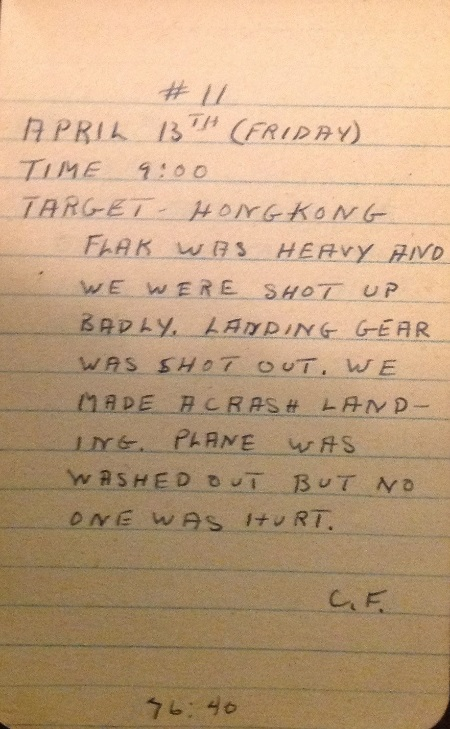 # 11
APRIL 13TH (FRIDAY)
TIME 9:00
TARGET - HONGKONG
FLAK WAS HEAVY AND
WE WERE SHOT UP
BADLY. LANDING GEAR
WAS SHOT OUT. WE
MADE A CRASH LAND-
ING. PLANE WAS
WASHED OUT BUT NO
ONE WAS HURT.
C.F.
76:40